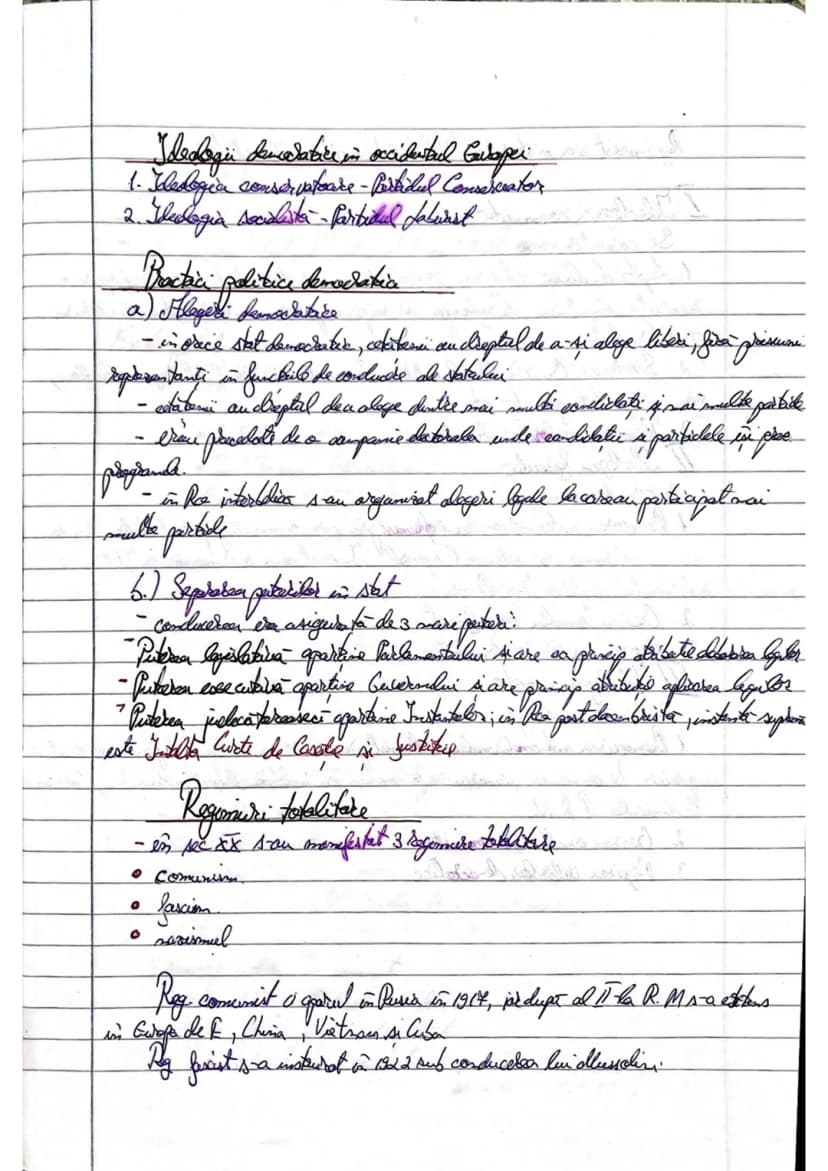 Ideologii democratice in occidentul Europei
1. Ideologia conservatoare - Partidul Conservator
2. Ideologia socialistă - Partidul Laburist
Practici politice democratice
a) Alegeri democratice
- in orice stat democratic, cetătenii au dreptul de a-si alege liberi, fără presiuni
reprezentanti in functiile de conducere ale statului
- cetătenii au dreptul de a alege dintre mai multi candidati si mai multe partide
- erau precedate de o campanie electorala unde candidatii si partidele isi
programele.
- in Ro interbelica s-au organizat alegeri legale la care au participat mai
multe partide
b.) Separarea puterilor in stat
- conducerea era asigurată de 3 mari puteri:
- Puterea legislativă apartine Parlamentului si are ca princip atributie elaborarea legilor
- Puterea executivă apartine Guvernului si are princip atributie aplicarea legilor
- Puterea judecătorească apartine Instantelor; in Ro postdecembristă, instanta supremă
este Inalta Curte de Casatie si Justitie
Regimuri totalitare
- in sec XX s-au manifestat 3 regimuri totalitare
• comunism
• fascism
• nazismul
Reg. comunist a aparut in Rusia in 1917, iar după al II-lea R. M s-a extins
in Europa de E, China, Vietnam si Cuba
Reg fascist s-a instaurat in 1922 sub conducerea lui Mussolini.